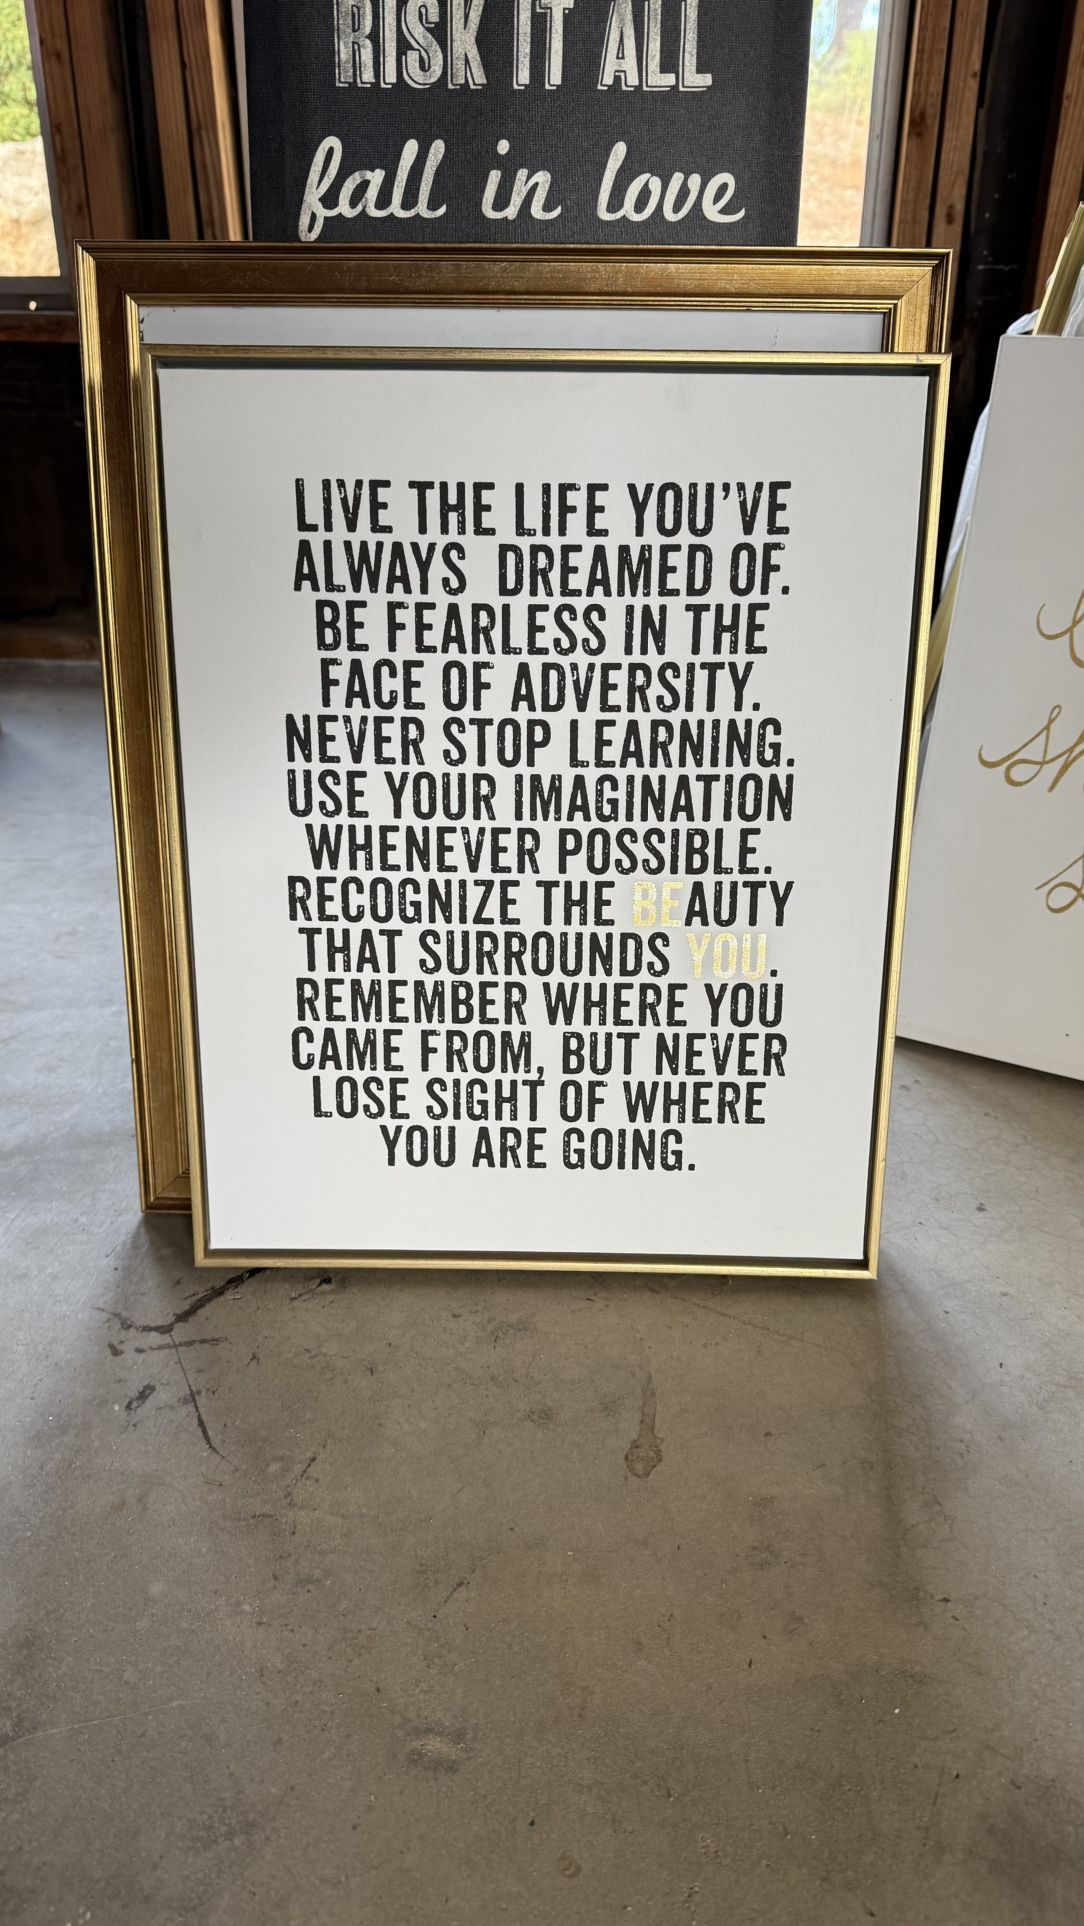 RISK IT ALL
fall in love
LIVE THE LIFE YOU'VE
ALWAYS DREAMED OF.
BE FEARLESS IN THE
FACE OF ADVERSITY.
NEVER STOP LEARNING.
USE YOUR IMAGINATION
WHENEVER POSSIBLE.
RECOGNIZE THE BEAUTY
THAT SURROUNDS YOU.
REMEMBER WHERE YOU
CAME FROM, BUT NEVER
LOSE SIGHT OF WHERE
YOU ARE GOING.